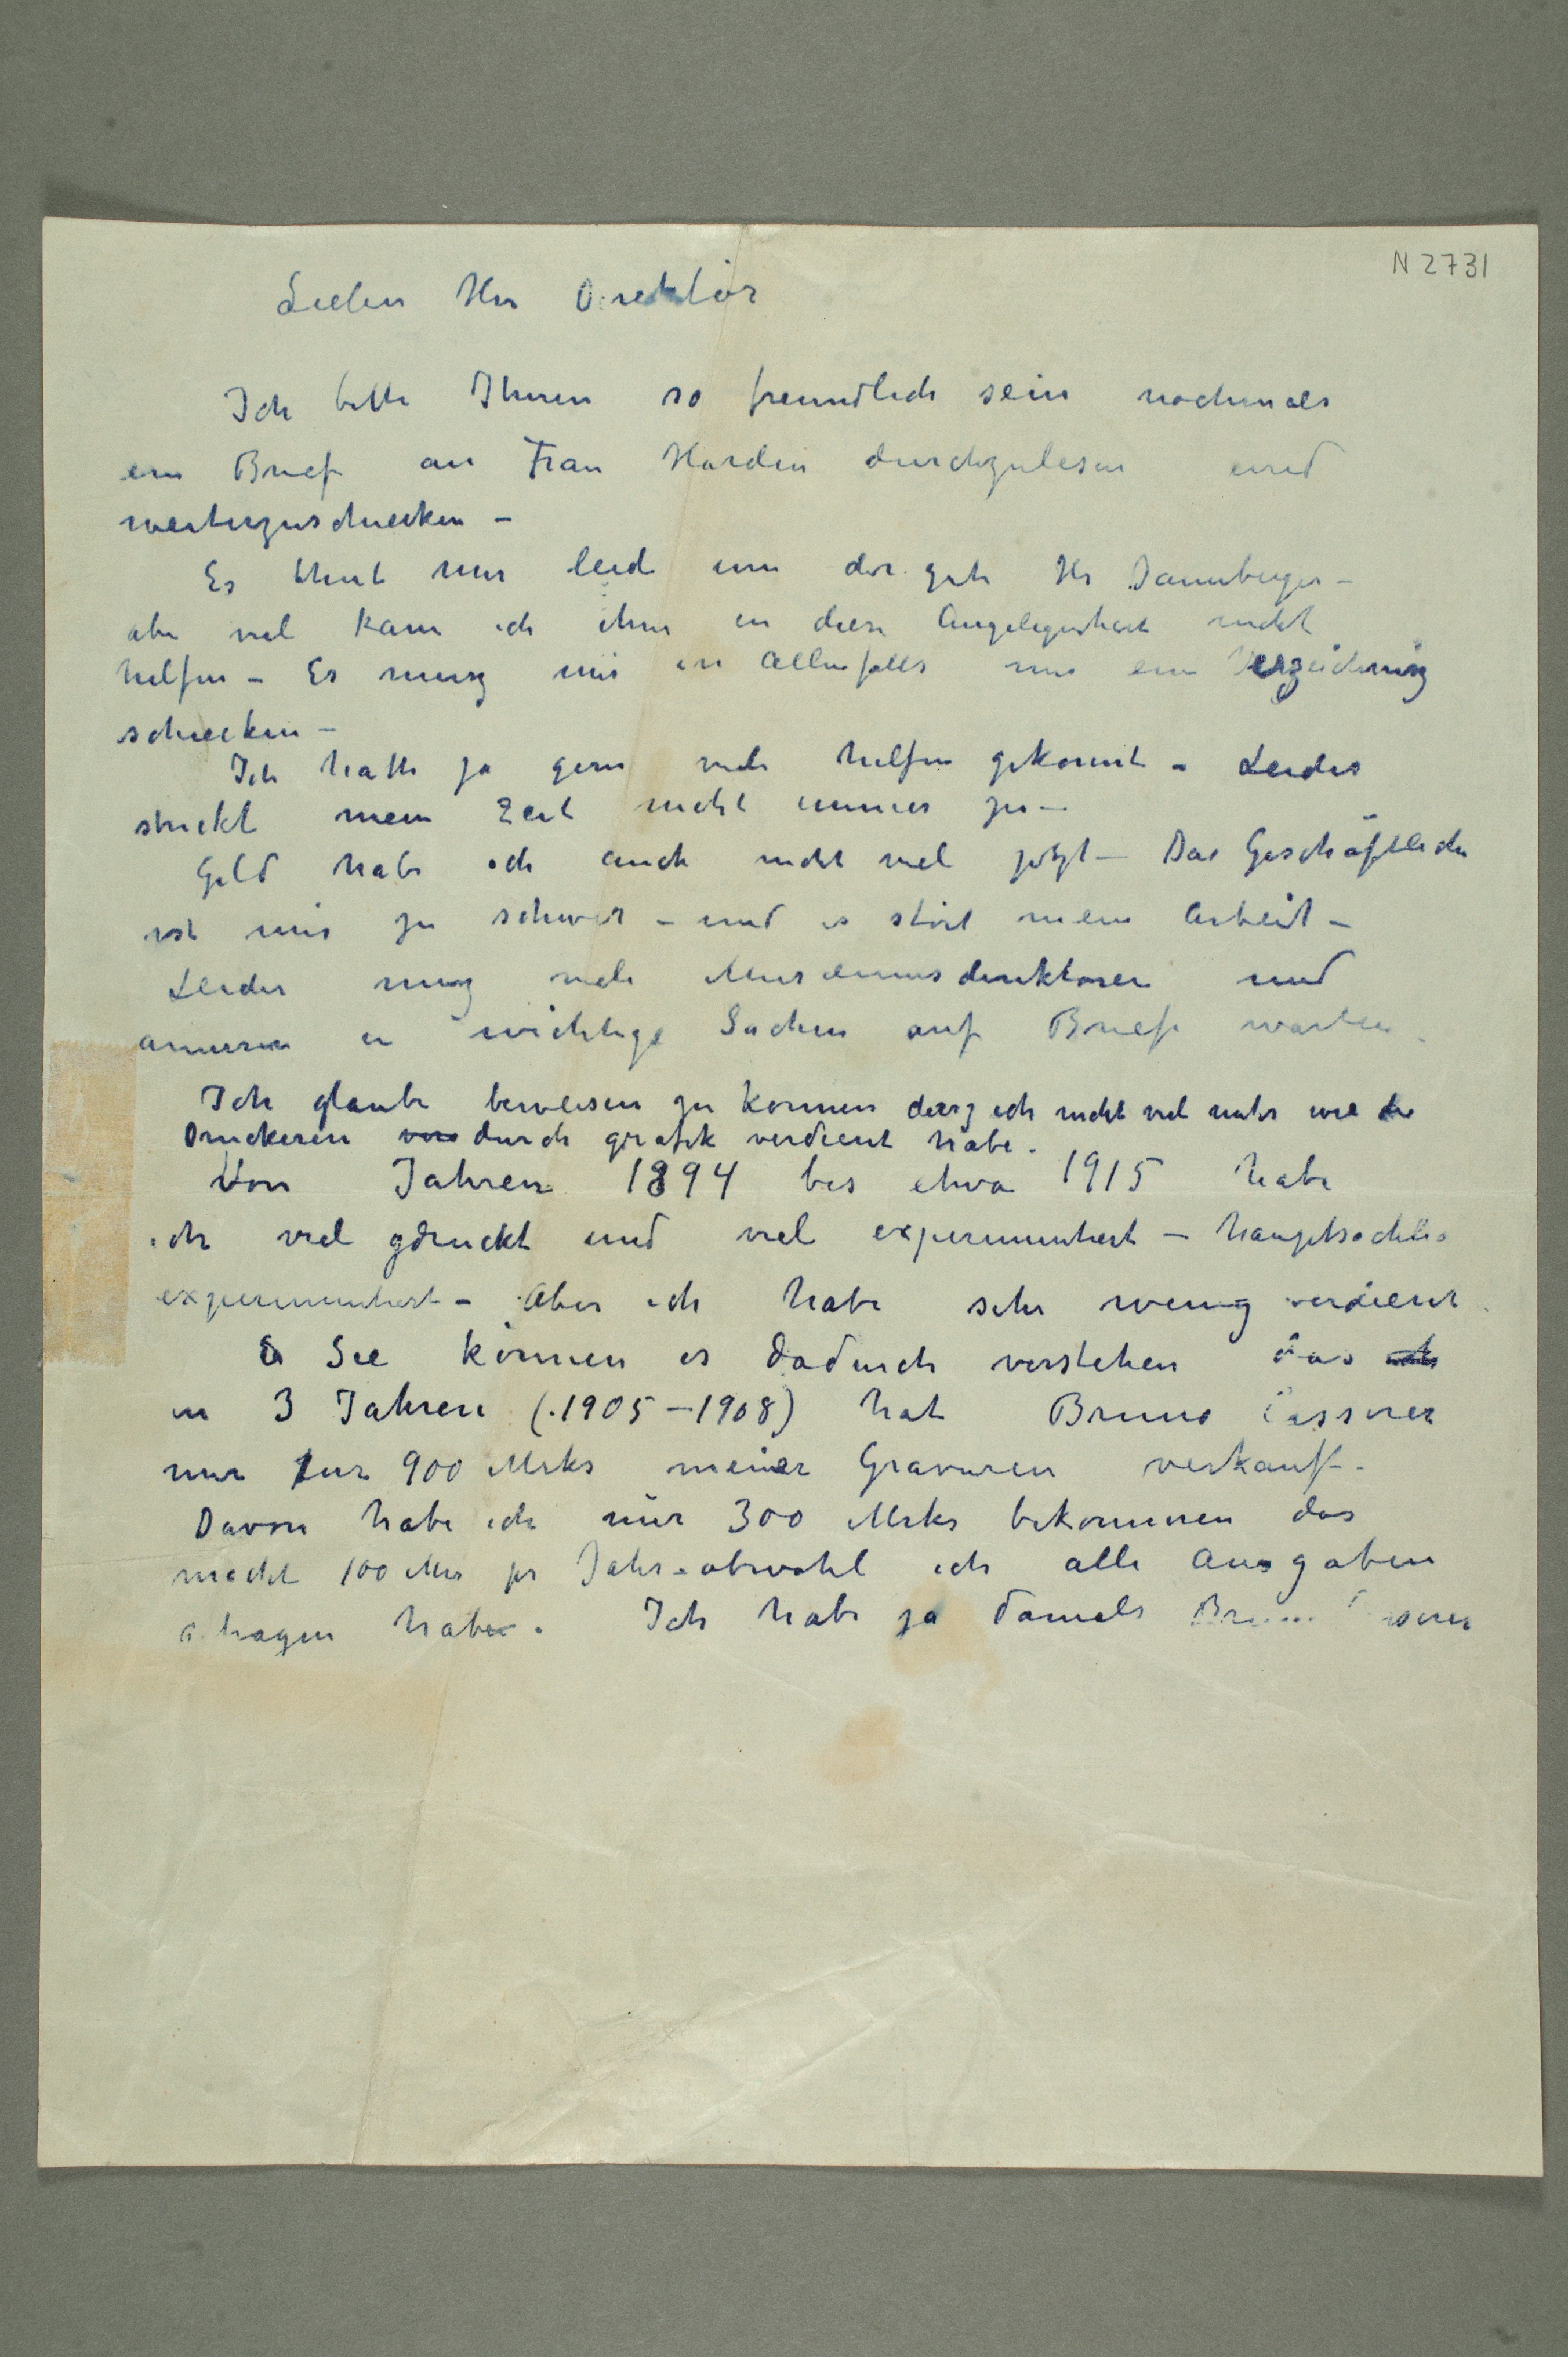 N 2731
Lieber Herr Direktor
Ich bitte Ihnen so freundlich sein nochmals
ein Brief an Frau Harden durchzulesen und
weiterzuschicken –
Es thut mir leid um der gute Hr Dannberger –
aber viel kann ich ihm in diese Angelegenheit nicht
helfen – Er musz mir in allenfalls nur ein Verzeichnisz
schicken –
Ich hatte ja gern mehr helfen gekonnt – Leider
streckt mein Zeit nicht immer zu –
Geld habe ich auch nicht viel jetzt – Das Geschäftliche
ist mir zu schwer – und es stört mein Arbeit –
Leider musz viele Museumsdirektoren und
anderen in wichtige Sachen auf Briefe warten
Ich glaube beweisen zu konnen dasz ich nicht viel mehr wie die
Druckeren durch grafik verdient habe.
Von Jahren 1894 bis etwa 1915 habe
ich viel gdruckt und viel experimentiert – hauptsachlic
experimentiert – Aber ich habe sehr wenig verdient
Sie können es dadurch verstehen das
in 3 Jahren (1905–1908) hat Bruno Cassirer
nur fur 900 Mrks meiner Gravuren verkauft –
Davon habe ich nur 300 Mrks bekommen das
macht 100 Mrs pr Jahr – obwohl ich alle Ausgaben
habe. Ich habe ja damals